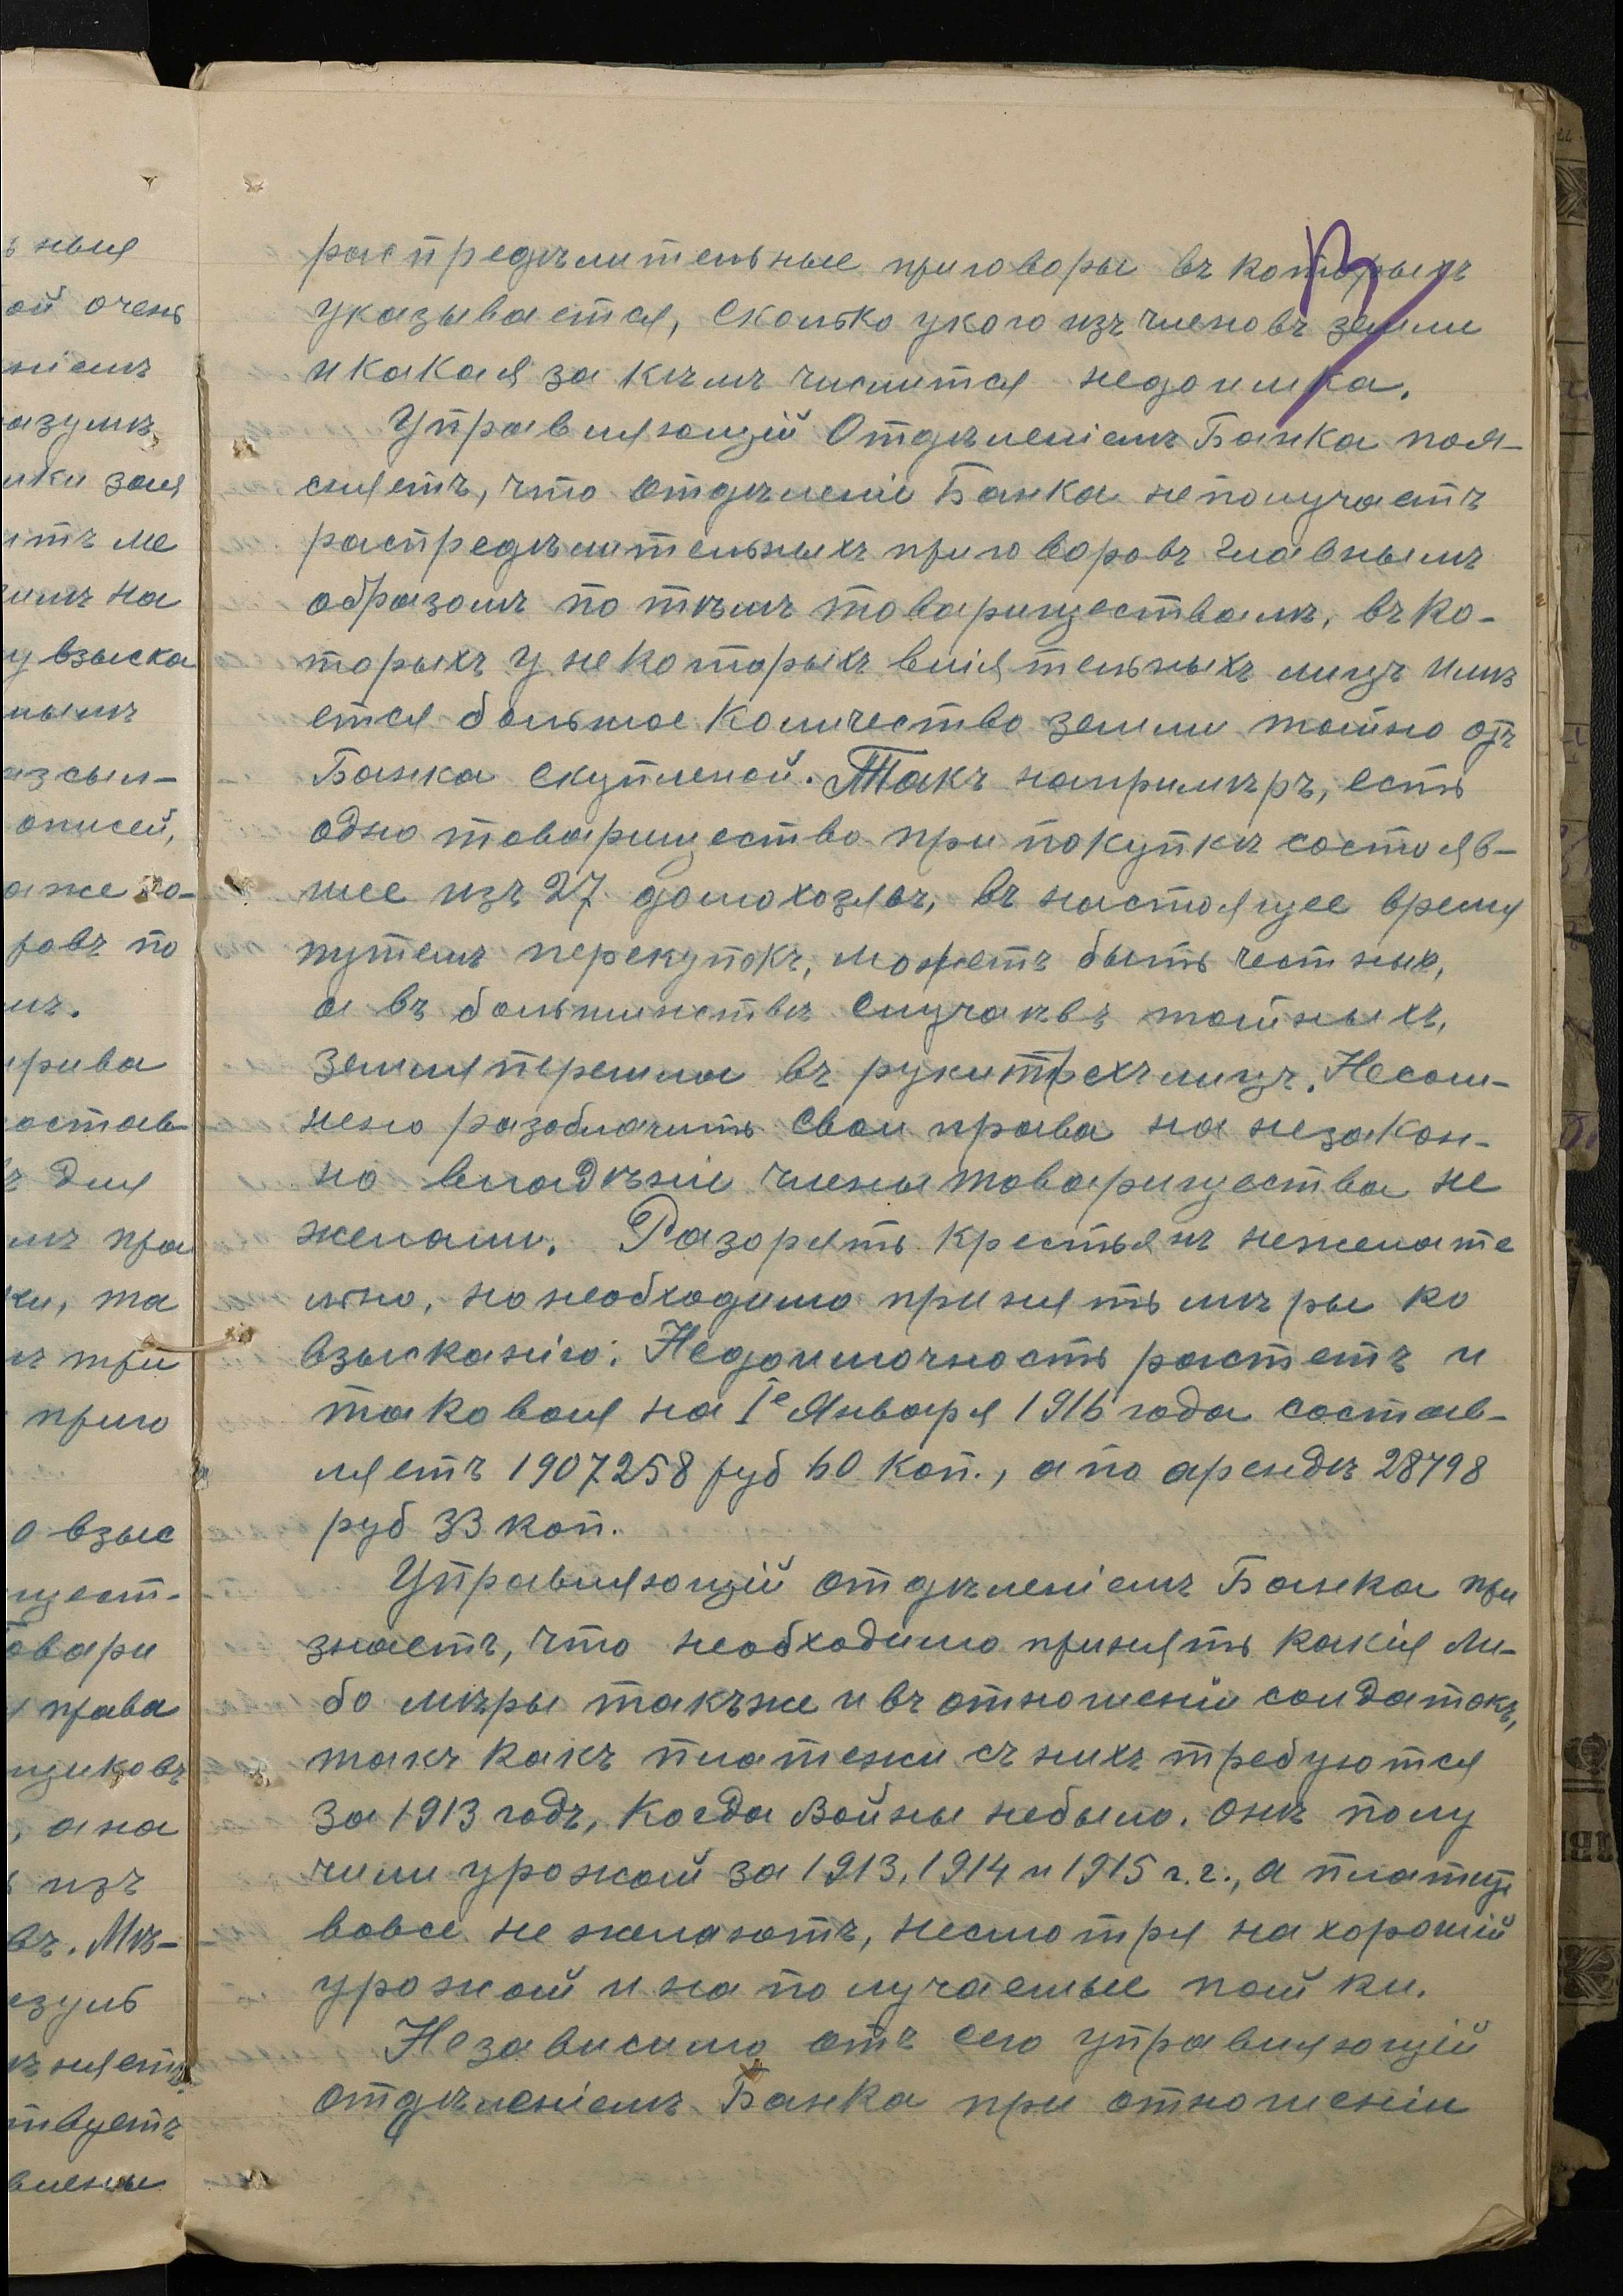 ъ ныя
ой очень
ніемъ
азумѣ
ики зая
итъ ме
имъ на
у взыска
нымъ
азсыл-
описей,
аже по-
ровъ по
мъ.
рива
остав-
ъ для
мъ пра
ки, та
ъ при
приго
о взыс
щест-
овари
права
щиковъ
, а на
изъ
въ. Мѣ-
езулъ
ѣняетъ
твуетъ
влены
распредѣлительные приговоры въ которыхъ
указывается, сколько у кого изъ членовъ земли
и какая за кѣмъ числится недоимка.
Управляющій Отдѣленіемъ Банка поя-
сняетъ, что отдѣленіе Банка не получаетъ
распредѣлительныхъ приговоровъ главнымъ
образомъ по тѣмъ товариществамъ, въ ко-
торыхъ у некоторыхъ вліятельныхъ лицъ имѣ
ется большое количество земли тайно отъ
Банка скупленой. Такъ напримѣръ, есть
одно товарищество при покупкѣ состояв-
шее изъ 27 домохозяевъ, въ настоящее время
путемъ перекупокъ, можетъ быть честных,
а въ большинствѣ случаевъ тайныхъ,
земля перешла въ руки трехъ лицъ. Несом-
нено разоблачить свои права на незакон-
но владѣніе члены товарищества не
желали. Разорять крестьянъ нежелате
льно, но необходимо принять мѣры ко
взысканію. Недоимочность растетъ и
таковая на 1е Января 1916 года состав-
ляетъ 1907258 руб 60 коп., а по арендѣ 28798
руб 33 коп.
Управляющій отдѣленіемъ Банка при
знаетъ, что необходимо принять какія ли-
бо мѣры такъже и въ отношеніи солдатокъ,
такъ какъ платежи съ нихъ требуются
за 1913 годъ, когда войны небыло. Онѣ полу
чили урожай за 1913, 1914 и 1915 г.г., а платить
вовсе не желаютъ, несмотря на хорошій
урожай и на получаемые пайки.
Независимо отъ сего управляющій
отдѣленіемъ Банка при отношеніи